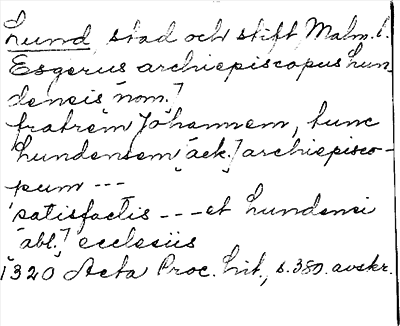 Lund stad och stift Malm. l.
Esgerus archiepiscopus Lun-
densis [nom.]
fratrem Johannem, tunc
Lundensem [ack.] archiepisco-
pum ---
satisfactis --- et Lundensi
[abl.] ecclesiis
1320 Acta Proc. Lit., s. 380. avskr.